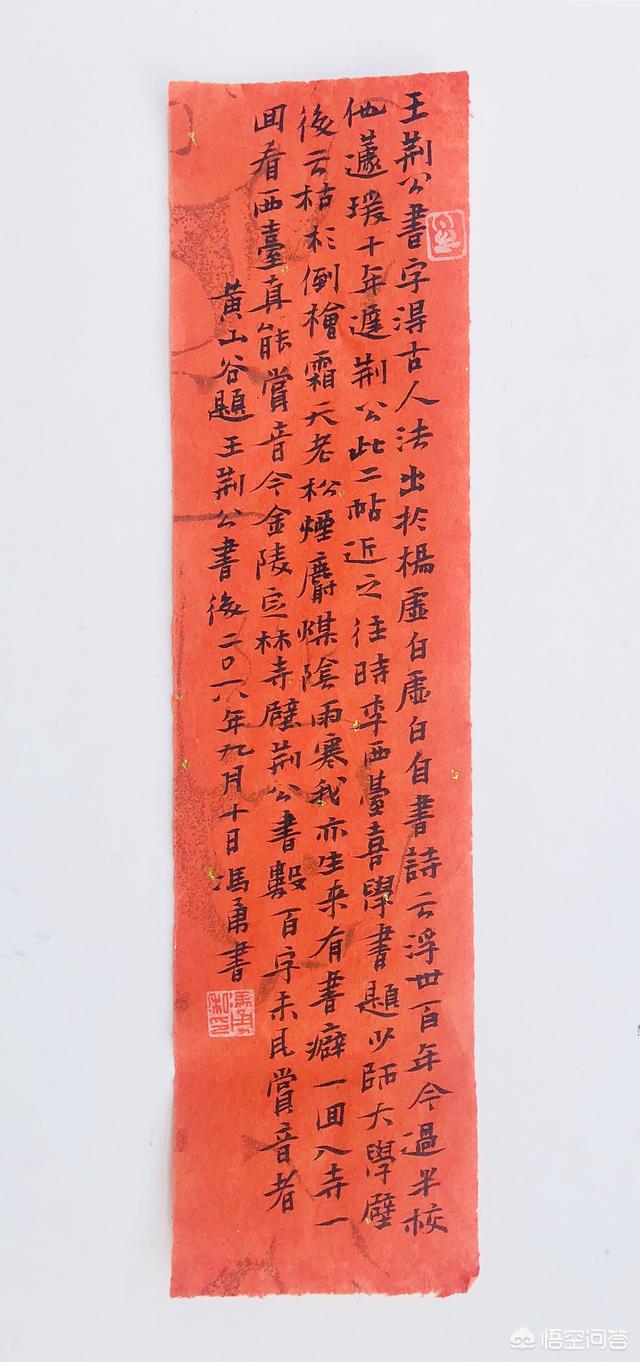 王荆公書字得古人法出於楊虛白虛白自書詩云浮世百年今過半校
他蘧瑗十年遲荆公此二帖近之往時李西臺喜學書題少師大學壁
後云枯杉倒檜霜天老松煙麝煤陰雨寒我亦生來有書癖一回入寺一
回看西臺真能賞音今金陵定林寺壁荆公書數百字未見賞音者
黃山谷題王荆公書後二〇一八年九月十日馮勇書
悟空问答